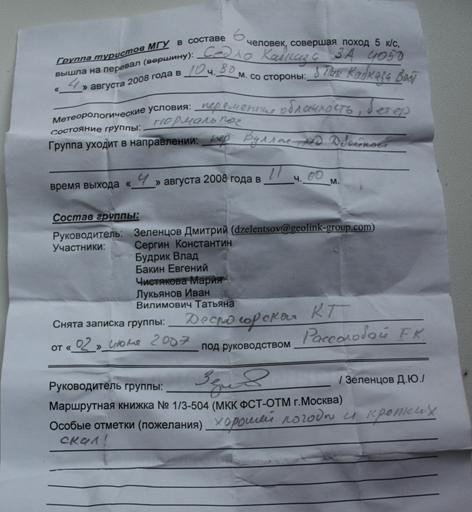 Группа туристов МГУ в составе 6 человек, совершая поход 5 к/с,
вышла на перевал (вершину): Седло Кавказа 3А 4050
« 4 » августа 2008 года в 10 ч. 30 м. со стороны:
Метеорологические условия: переменная облачность, ветер
Состояние группы: нормальное
Группа уходит в направлении: пер
время выхода « 4 » августа 2008 года в 11 ч. 00 м.
Состав группы:
Руководитель: Зеленцов Дмитрий (dzelentsov@geolink-group.com)
Участники: Сергин Константин
Будрик Влад
Бакин Евгений
Чистякова Мария
Лукьянов Иван
Вилимович Татьяна
Снята записка группы: КТ
от « 02 » 2007 под руководством Рассоловой
Руководитель группы: / Зеленцов Д.Ю./
Маршрутная книжка № 1/3-504 (МКК ФСТ-ОТМ г.Москва)
Особые отметки (пожелания) хорошей погоды и крепких
скал!